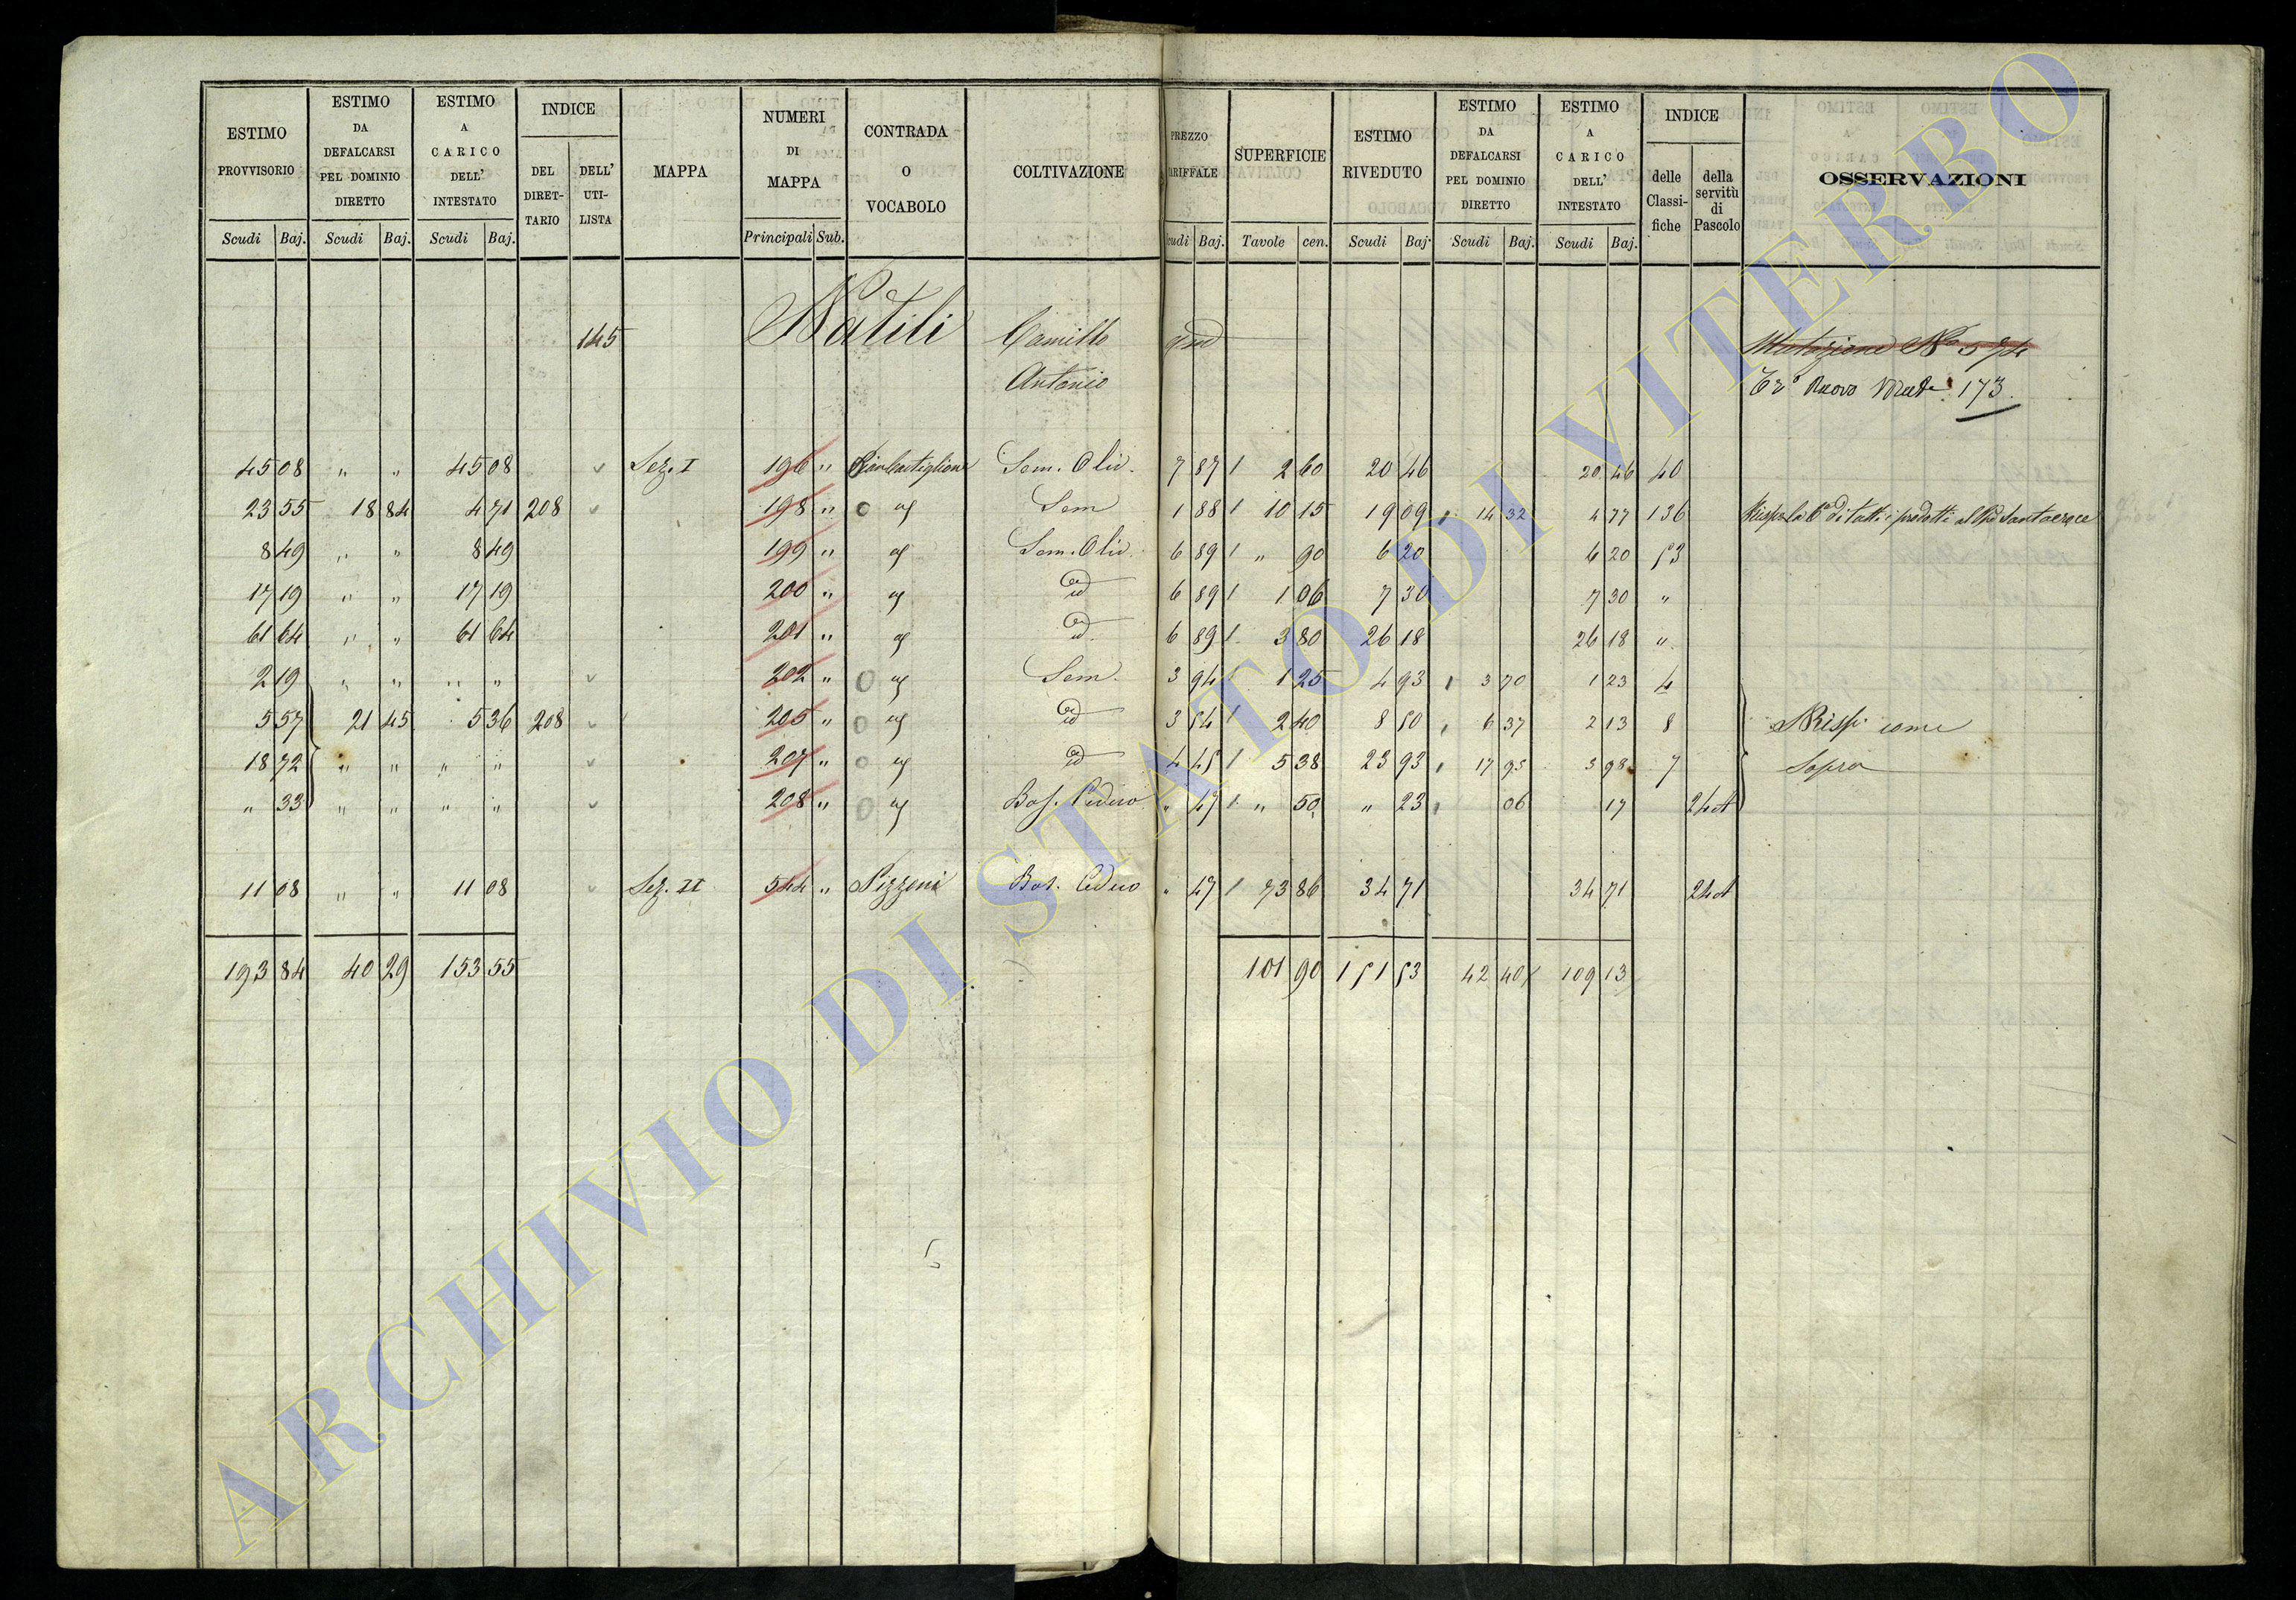 ESTIMO PROVVISORIO | ESTIMO DA DEFALCARSI PEL DOMINIO DIRETTO | ESTIMO A CARICO DELL' INTESTATO | INDICE DEL DIRETTARIO | DELL' UTILISTA | MAPPA | NUMERI DI MAPPA | CONTRADA O VOCABOLO | COLTIVAZIONE | PREZZO TARIFFALE | SUPERFICIE | ESTIMO RIVEDUTO | ESTIMO DA DEFALCARSI PEL DOMINIO DIRETTO | ESTIMO A CARICO DELL' INTESTATO | INDICE delle Classifiche | della servitù di Pascolo | OSSERVAZIONI
Scudi Baj. | Scudi Baj. | Scudi Baj. | Principali Sub. | Scudi Baj. | Tavole cen. | Scudi Baj. | Scudi Baj. | Scudi Baj.
145 Natili Camillo qm Mutazione No 574
Antonio Nuovo 173.
45 08 " " 45 08 Sez. I 196 " Sem. Oliv. 7 87 2 60 20 46 20 46 40
23 55 18 84 4 71 208 198 " Sem 1 88 10 15 19 09 14 32 4 77 136 di tutti i prodotti
8 49 " " 8 49 199 " Sem. Oliv. 6 89 " 90 6 20 6 20 53
17 19 " " 17 19 200 " id 6 89 1 06 7 30 7 30 "
61 64 " " 61 64 201 " id 6 89 3 80 26 18 26 18 "
2 19 " " " " 202 " Sem. 3 94 1 25 4 93 3 70 1 23 4
5 57 21 45 5 36 208 205 " id 3 54 2 40 8 50 6 37 2 13 8 Risp. come
18 72 " " " " 207 " id 4 45 5 38 23 93 17 95 5 98 7 Sopra
" 33 " " " " 208 " Bos. Ceduo " 47 " 50 " 23 06 17 24A
11 08 " " 11 08 Sez. II 544 " Pizzoni Bos. Ceduo " 47 73 86 34 71 34 71 24A
193 84 40 29 153 55 101 90 151 53 42 40 109 13
ARCHIVIO DI STATO DI VITERBO